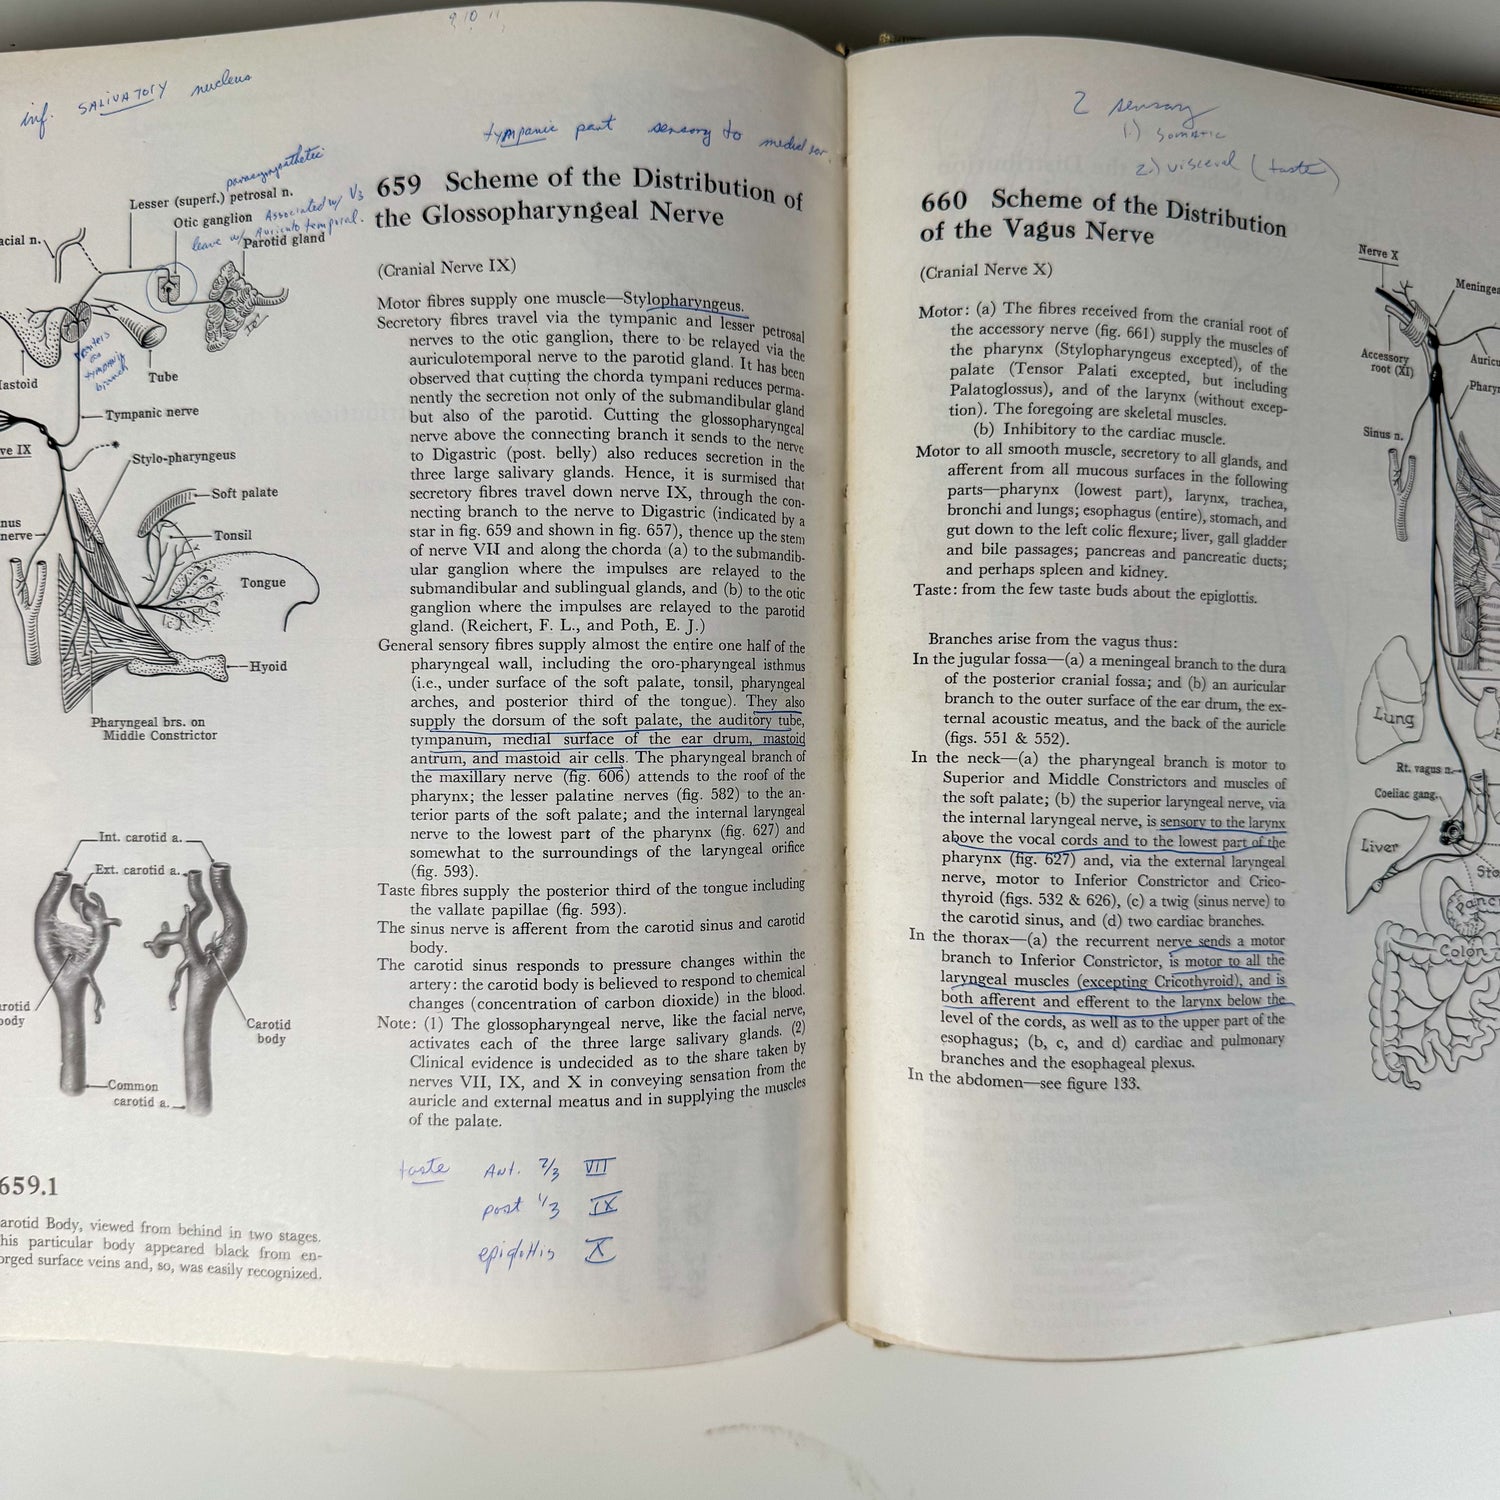 9 10 11
inf. SALIVATORY nucleus
parasympathetic
Lesser (superf.) petrosal n.
Otic ganglion Associated w/ V3
leave w/ Auriculo temporal.
acial n.
Parotid gland
astoid
enters
as
tympanic
branch
Tube
Tympanic nerve
ve IX
Stylo-pharyngeus
Soft palate
nus
nerve
Tonsil
Tongue
Hyoid
Pharyngeal brs. on
Middle Constrictor
Int. carotid a.
Ext. carotid a.
arotid
body
Carotid
body
Common
carotid a.
659.1
arotid Body, viewed from behind in two stages.
his particular body appeared black from en-
orged surface veins and, so, was easily recognized.
tympanic part sensory to medial
659 Scheme of the Distribution of
the Glossopharyngeal Nerve
(Cranial Nerve IX)
Motor fibres supply one muscle—Stylopharyngeus.
Secretory fibres travel via the tympanic and lesser petrosal
nerves to the otic ganglion, there to be relayed via the
auriculotemporal nerve to the parotid gland. It has been
observed that cutting the chorda tympani reduces perma-
nently the secretion not only of the submandibular gland
but also of the parotid. Cutting the glossopharyngeal
nerve above the connecting branch it sends to the nerve
to Digastric (post. belly) also reduces secretion in the
three large salivary glands. Hence, it is surmised that
secretory fibres travel down nerve IX, through the con-
necting branch to the nerve to Digastric (indicated by a
star in fig. 659 and shown in fig. 657), thence up the stem
of nerve VII and along the chorda (a) to the submandib-
ular ganglion where the impulses are relayed to the
submandibular and sublingual glands, and (b) to the otic
ganglion where the impulses are relayed to the parotid
gland. (Reichert, F. L., and Poth, E. J.)
General sensory fibres supply almost the entire one half of the
pharyngeal wall, including the oro-pharyngeal isthmus
(i.e., under surface of the soft palate, tonsil, pharyngeal
arches, and posterior third of the tongue). They also
supply the dorsum of the soft palate, the auditory tube,
tympanum, medial surface of the ear drum, mastoid
antrum, and mastoid air cells. The pharyngeal branch of
the maxillary nerve (fig. 606) attends to the roof of the
pharynx; the lesser palatine nerves (fig. 582) to the an-
terior parts of the soft palate; and the internal laryngeal
nerve to the lowest part of the pharynx (fig. 627) and
somewhat to the surroundings of the laryngeal orifice
(fig. 593).
Taste fibres supply the posterior third of the tongue including
the vallate papillae (fig. 593).
The sinus nerve is afferent from the carotid sinus and carotid
body.
The carotid sinus responds to pressure changes within the
artery: the carotid body is believed to respond to chemical
changes (concentration of carbon dioxide) in the blood.
Note: (1) The glossopharyngeal nerve, like the facial nerve,
activates each of the three large salivary glands. (2)
Clinical evidence is undecided as to the share taken by
nerves VII, IX, and X in conveying sensation from the
auricle and external meatus and in supplying the muscles
of the palate.
taste Ant. 2/3 VII
post 1/3 IX
epiglottis X
2 sensory
1.) Somatic
2.) visceral (taste)
660 Scheme of the Distribution
of the Vagus Nerve
(Cranial Nerve X)
Motor: (a) The fibres received from the cranial root of
the accessory nerve (fig. 661) supply the muscles of
the pharynx (Stylopharyngeus excepted), of the
palate (Tensor Palati excepted, but including
Palatoglossus), and of the larynx (without excep-
tion). The foregoing are skeletal muscles.
(b) Inhibitory to the cardiac muscle.
Motor to all smooth muscle, secretory to all glands, and
afferent from all mucous surfaces in the following
parts—pharynx (lowest part), larynx, trachea,
bronchi and lungs; esophagus (entire), stomach, and
gut down to the left colic flexure; liver, gall gladder
and bile passages; pancreas and pancreatic ducts;
and perhaps spleen and kidney.
Taste: from the few taste buds about the epiglottis.
Branches arise from the vagus thus:
In the jugular fossa—(a) a meningeal branch to the dura
of the posterior cranial fossa; and (b) an auricular
branch to the outer surface of the ear drum, the ex-
ternal acoustic meatus, and the back of the auricle
(figs. 551 & 552).
In the neck—(a) the pharyngeal branch is motor to
Superior and Middle Constrictors and muscles of
the soft palate; (b) the superior laryngeal nerve, via
the internal laryngeal nerve, is sensory to the larynx
above the vocal cords and to the lowest part of the
pharynx (fig. 627) and, via the external laryngeal
nerve, motor to Inferior Constrictor and Crico-
thyroid (figs. 532 & 626), (c) a twig (sinus nerve) to
the carotid sinus, and (d) two cardiac branches.
In the thorax—(a) the recurrent nerve sends a motor
branch to Inferior Constrictor, is motor to all the
laryngeal muscles (excepting Cricothyroid), and is
both afferent and efferent to the larynx below the
level of the cords, as well as to the upper part of the
esophagus; (b, c, and d) cardiac and pulmonary
branches and the esophageal plexus.
In the abdomen—see figure 133.
Nerve X
Meningea
Accessory
root (XI)
Auricu
Pharyn
Sinus n.
Lung
H
Rt. vagus n.
Coeliac gang.
Liver
Sto
Pancr
Colon